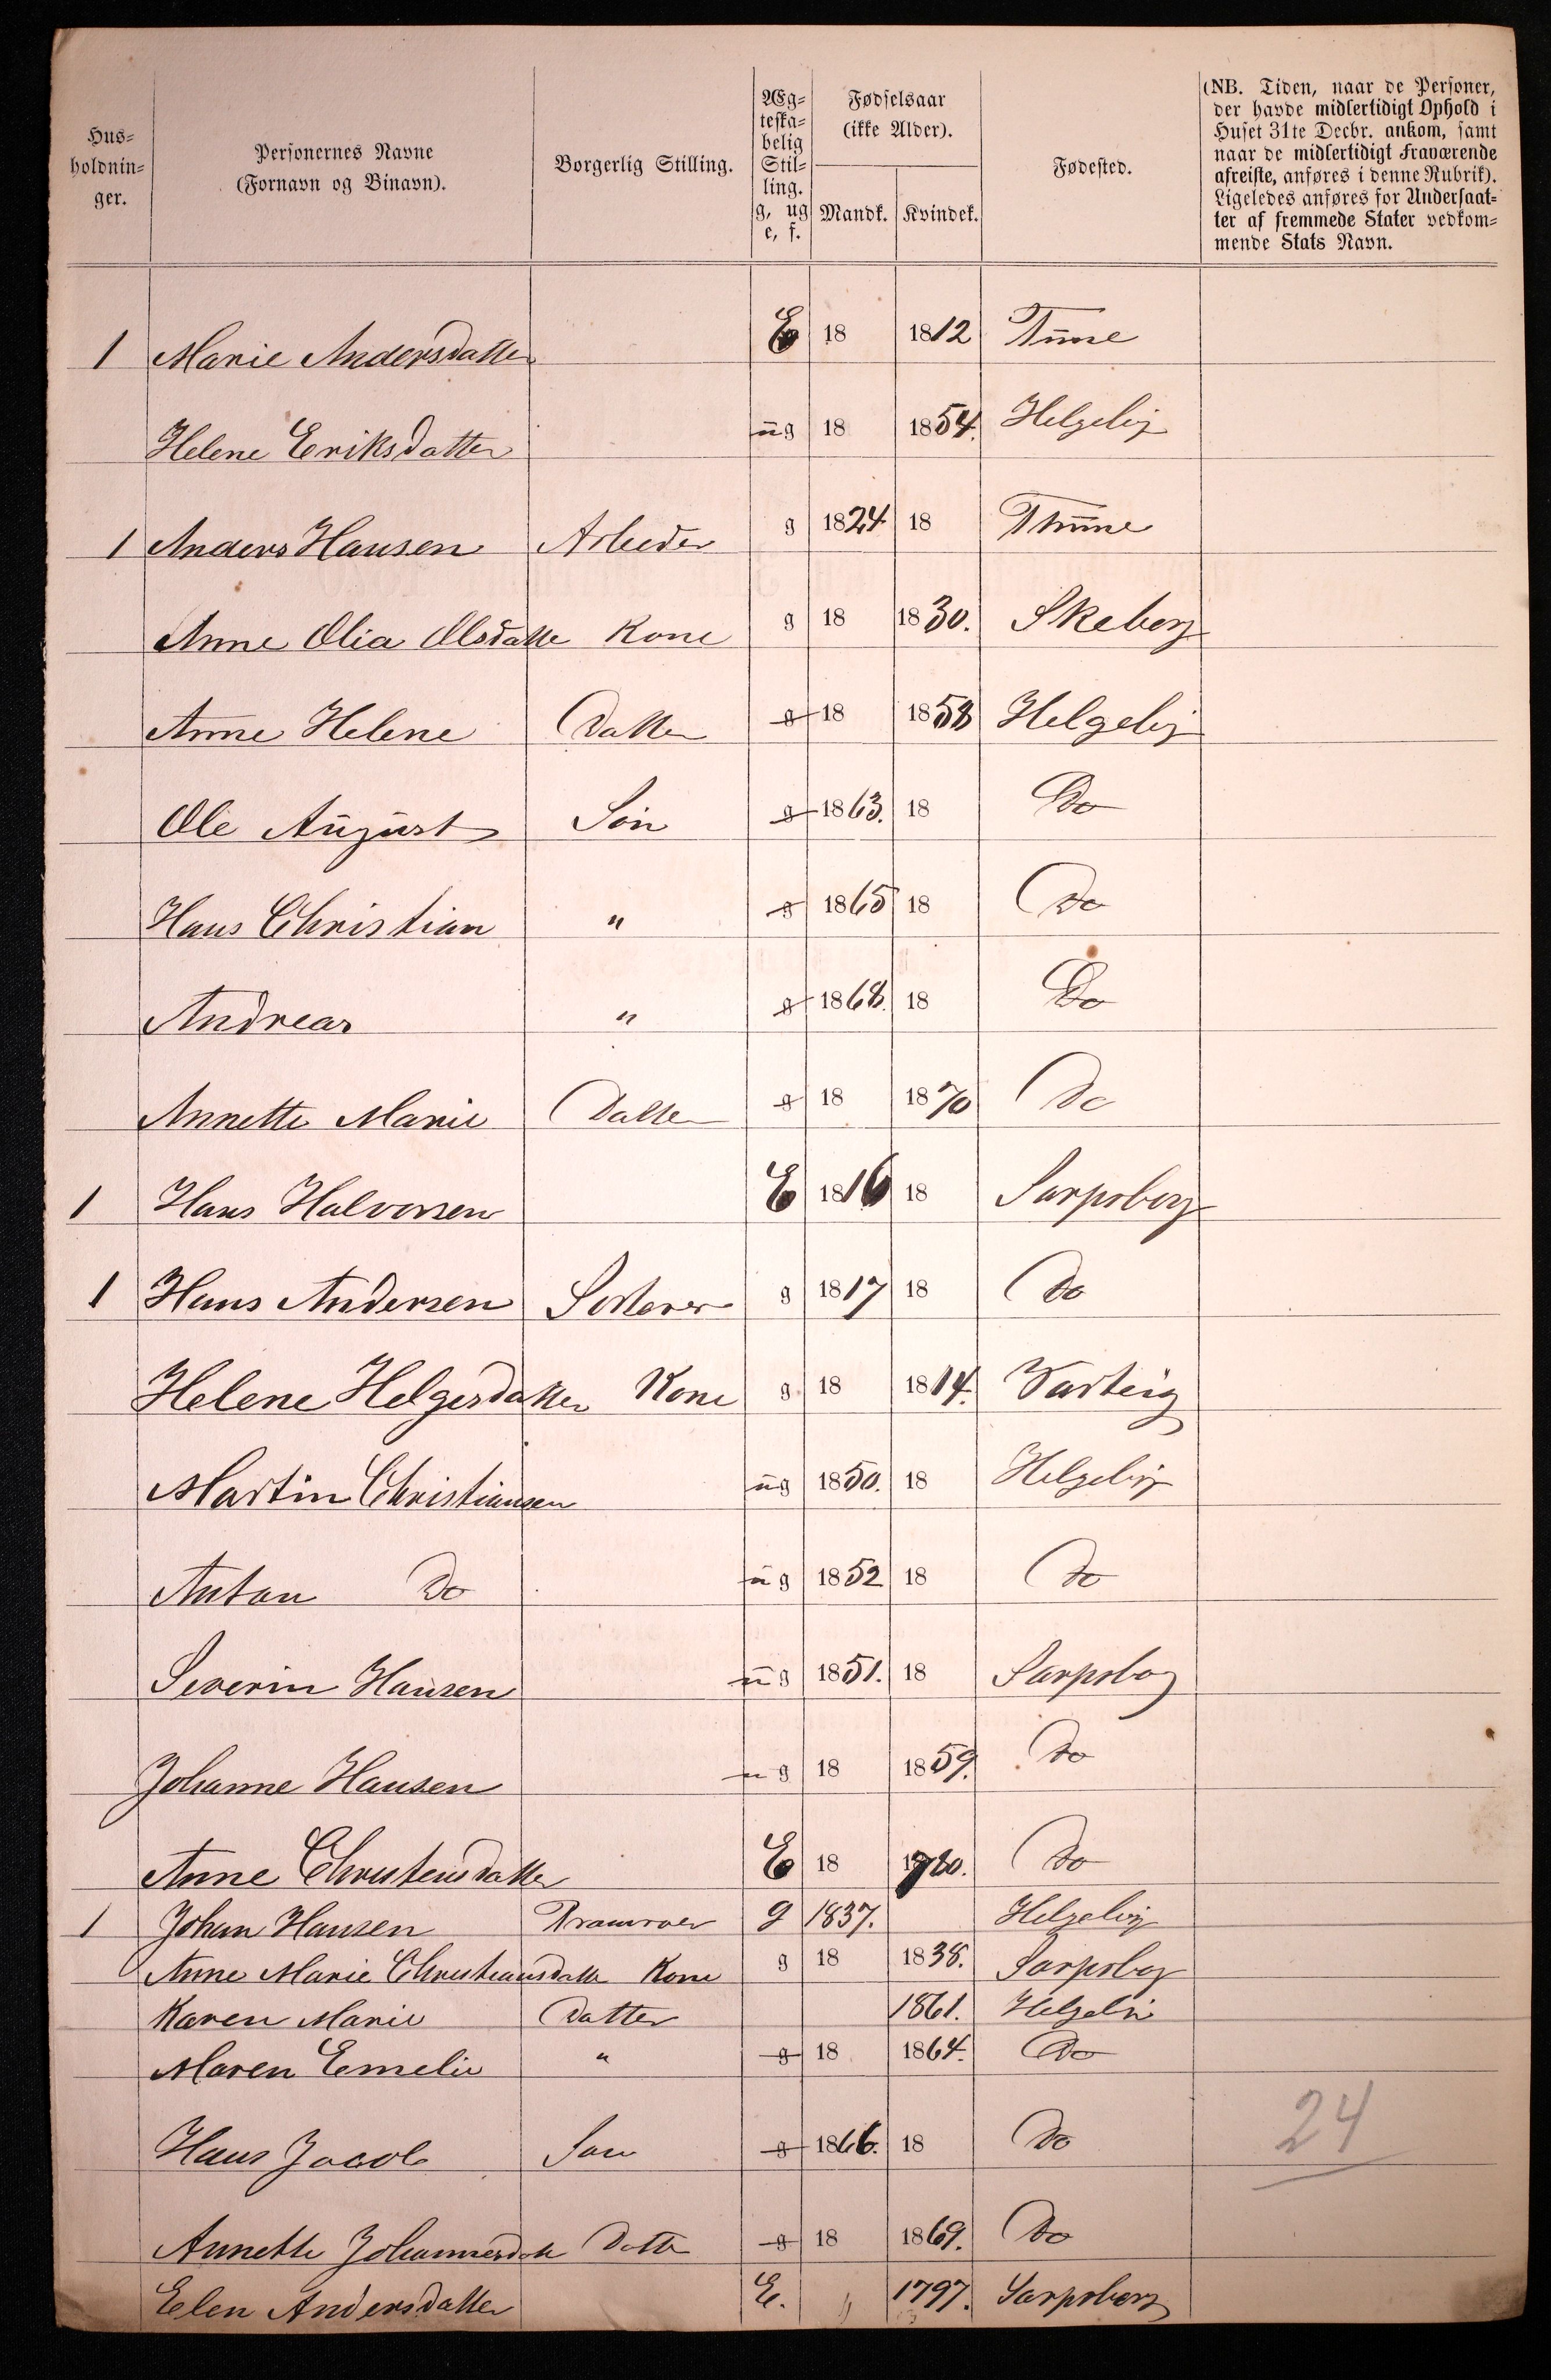 Hus-
holdnin-
ger.
Personernes Navne
(Fornavn og Binavn).
Borgerlig Stilling.
Æg-
teska-
belig
Stil-
ling.
g, ug
e, f.
Fødselsaar
(ikke Alder).
Mandk. Kvindek.
Fødested.
(NB. Tiden, naar de Personer,
der havde midlertidigt Ophold i
Huset 31te Decbr. ankom, samt
naar de midlertidigt Fraværende
afreiste, anføres i denne Rubrik).
Ligeledes anføres for Undersaat-
ter af fremmede Stater vedkom-
mende Stats Navn.
1 Marie Andersdatter E 18 1812 Tune
Helene Eriksdatter ug 18 1854. Helgeby
1 Anders Hansen Arbeider g 1824 18 Thune
Anne Olia Olsdatte Kone g 18 1830. Skeberg
Anne Helene Datter g 18 1858 Helgeby
Ole August Søn g 1863. 18 Do
Hans Christian " g 1865 18 Do
Andreas " g 1868. 18 Do
Annette Marie Datter g 18 1870 Do
1 Hans Halvorsen E 1816 18 Sarpsborg
1 Hans Andersen g 1817 18 Do
Helene Helgesdatter Kone g 18 1814. Varteig
Martin Christiansen ug 1850. 18 Helgeby
Anton Do ug 1852 18 Do
Severin Hansen ug 1851. 18 Sarpsborg
Johanne Hansen ug 18 1859. Do
Anne Christensdatter E 18 Do
1 Johan Hansen Pramroer g 1837. Helgeby
Anne Marie Christiansdatte Kone g 18 1838. Sarpsborg
Karen Marie Datter 1861. Helgeby
Maren Emelie " g 18 1864. Do
Hans Jacob Søn g 1866. 18 Do
24
Annette Johannesdatte Datter g 18 1869. Do
Eelen Andersdatter E. 1797. Sarpsborg